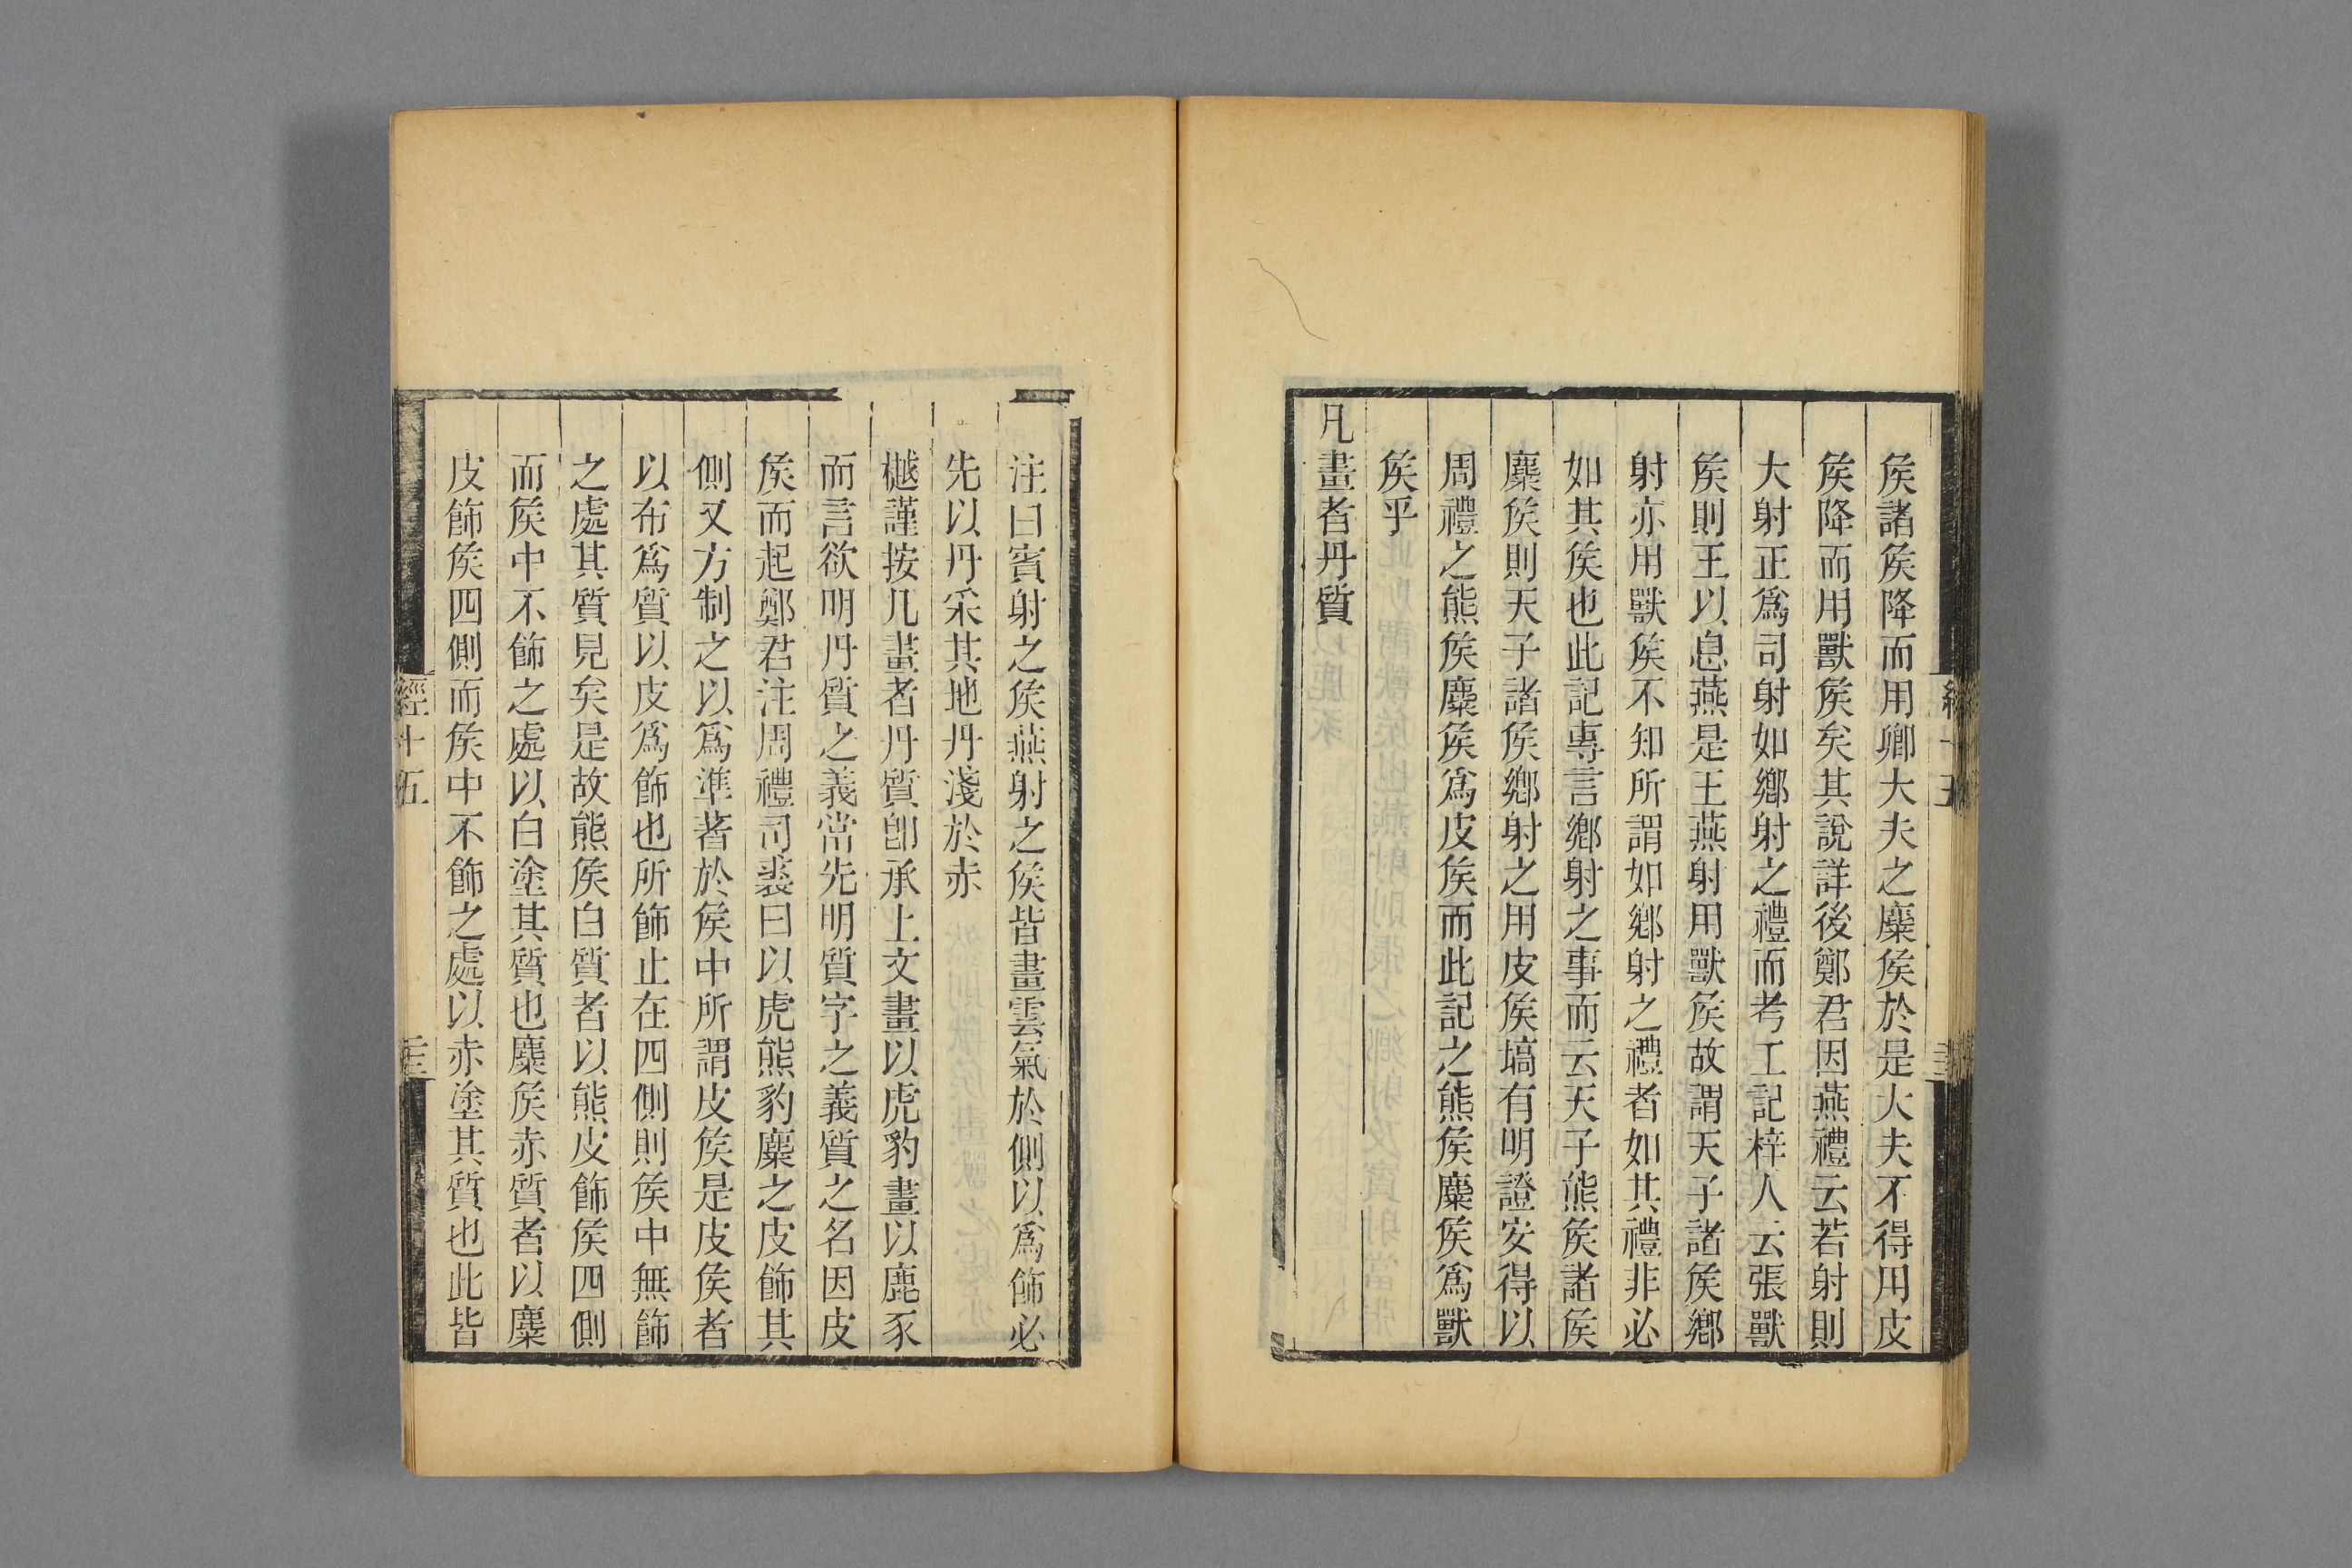 矦諸矦降而用卿大夫之麋矦於是大夫不得用皮
矦降而用獸矦矣其說詳後鄭君因燕禮云若射則
大射正爲司射如鄉射之禮而考工記梓人云張獸
矦則王以息燕是王燕射用獸矦故謂天子諸矦鄉
射亦用獸矦不知所謂如鄉射之禮者如其禮非必
如其矦也此記專言鄉射之事而云天子熊矦諸矦
麋矦則天子諸矦鄉射之用皮矦塙有明證安得以
周禮之熊矦麋矦爲皮矦而此記之熊矦麋矦爲獸
矦乎
凡畫者丹質
注曰賓射之矦燕射之矦皆畫雲氣於側以爲飾必
先以丹采其地丹淺於赤
樾謹按凡畫者丹質卽承上文畫以虎豹畫以鹿豕
而言欲明丹質之義當先明質字之義質之名因皮
矦而起鄭君注周禮司裘曰以虎熊豹麋之皮飾其
側又方制之以爲準著於矦中所謂皮矦是皮矦者
以布爲質以皮爲飾也所飾止在四側則矦中無飾
之處其質見矣是故熊矦白質者以熊皮飾矦四側
而矦中不飾之處以白塗其質也麋矦赤質者以麋
皮飾矦四側而矦中不飾之處以赤塗其質也此皆
經十五